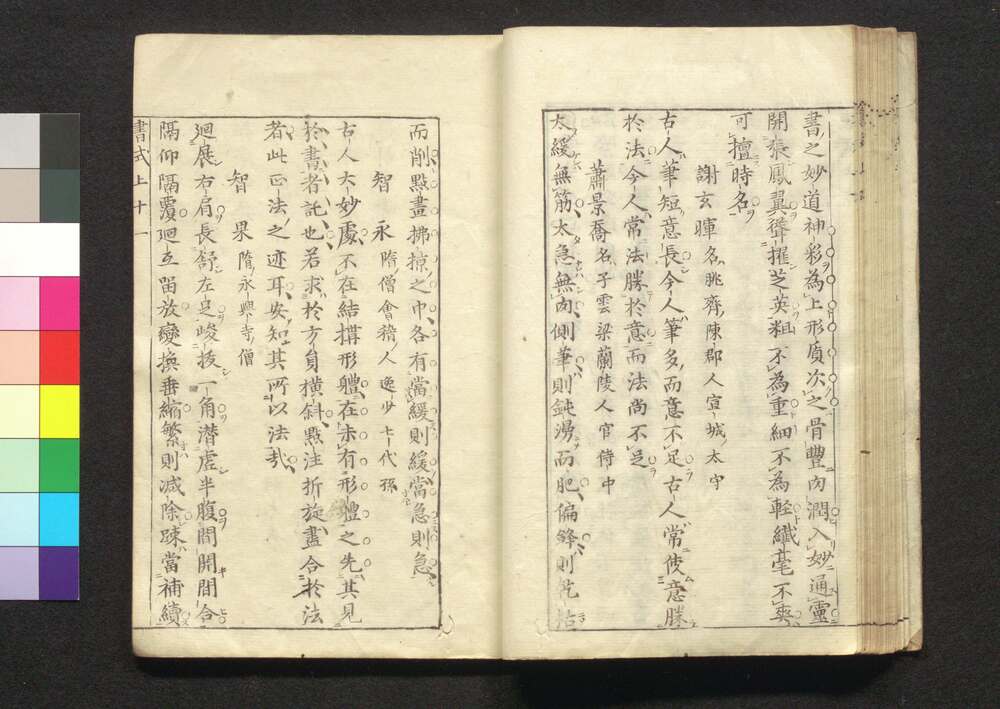 書之妙道神彩為上形質次之骨豐肉潤入妙通靈
開張鳳翼聳擢芝英粗不為重細不為軽纖毫不爽
可擅時名
謝玄暉名朓齊陳郡人宣城太守
古人筆短意長今人筆多而意不足古人常使意勝
於法今人常法勝於意而法尚不足
蕭景喬名子雲梁蘭陵人官侍中
太緩無筋太急無肉側筆則鈍湧而肥偏鋒則乾枯
而削點畫拂掠之巾各有當緩則緩當急則急
智永隋僧會稽人逸少七代孫
古人大妙處不在結搆形體在未有形體之先其見
於書者託也若求於方負横斜點注折旋盡合於法
者此正法之迹耳安知其所以法哉
智果隋永興寺僧
廻展右肩長舒左足峻拔一角潜虚半腹間開間合
隔仰隔覆廻互畄放變換垂縮繁則减除踈當補續
書式上十一